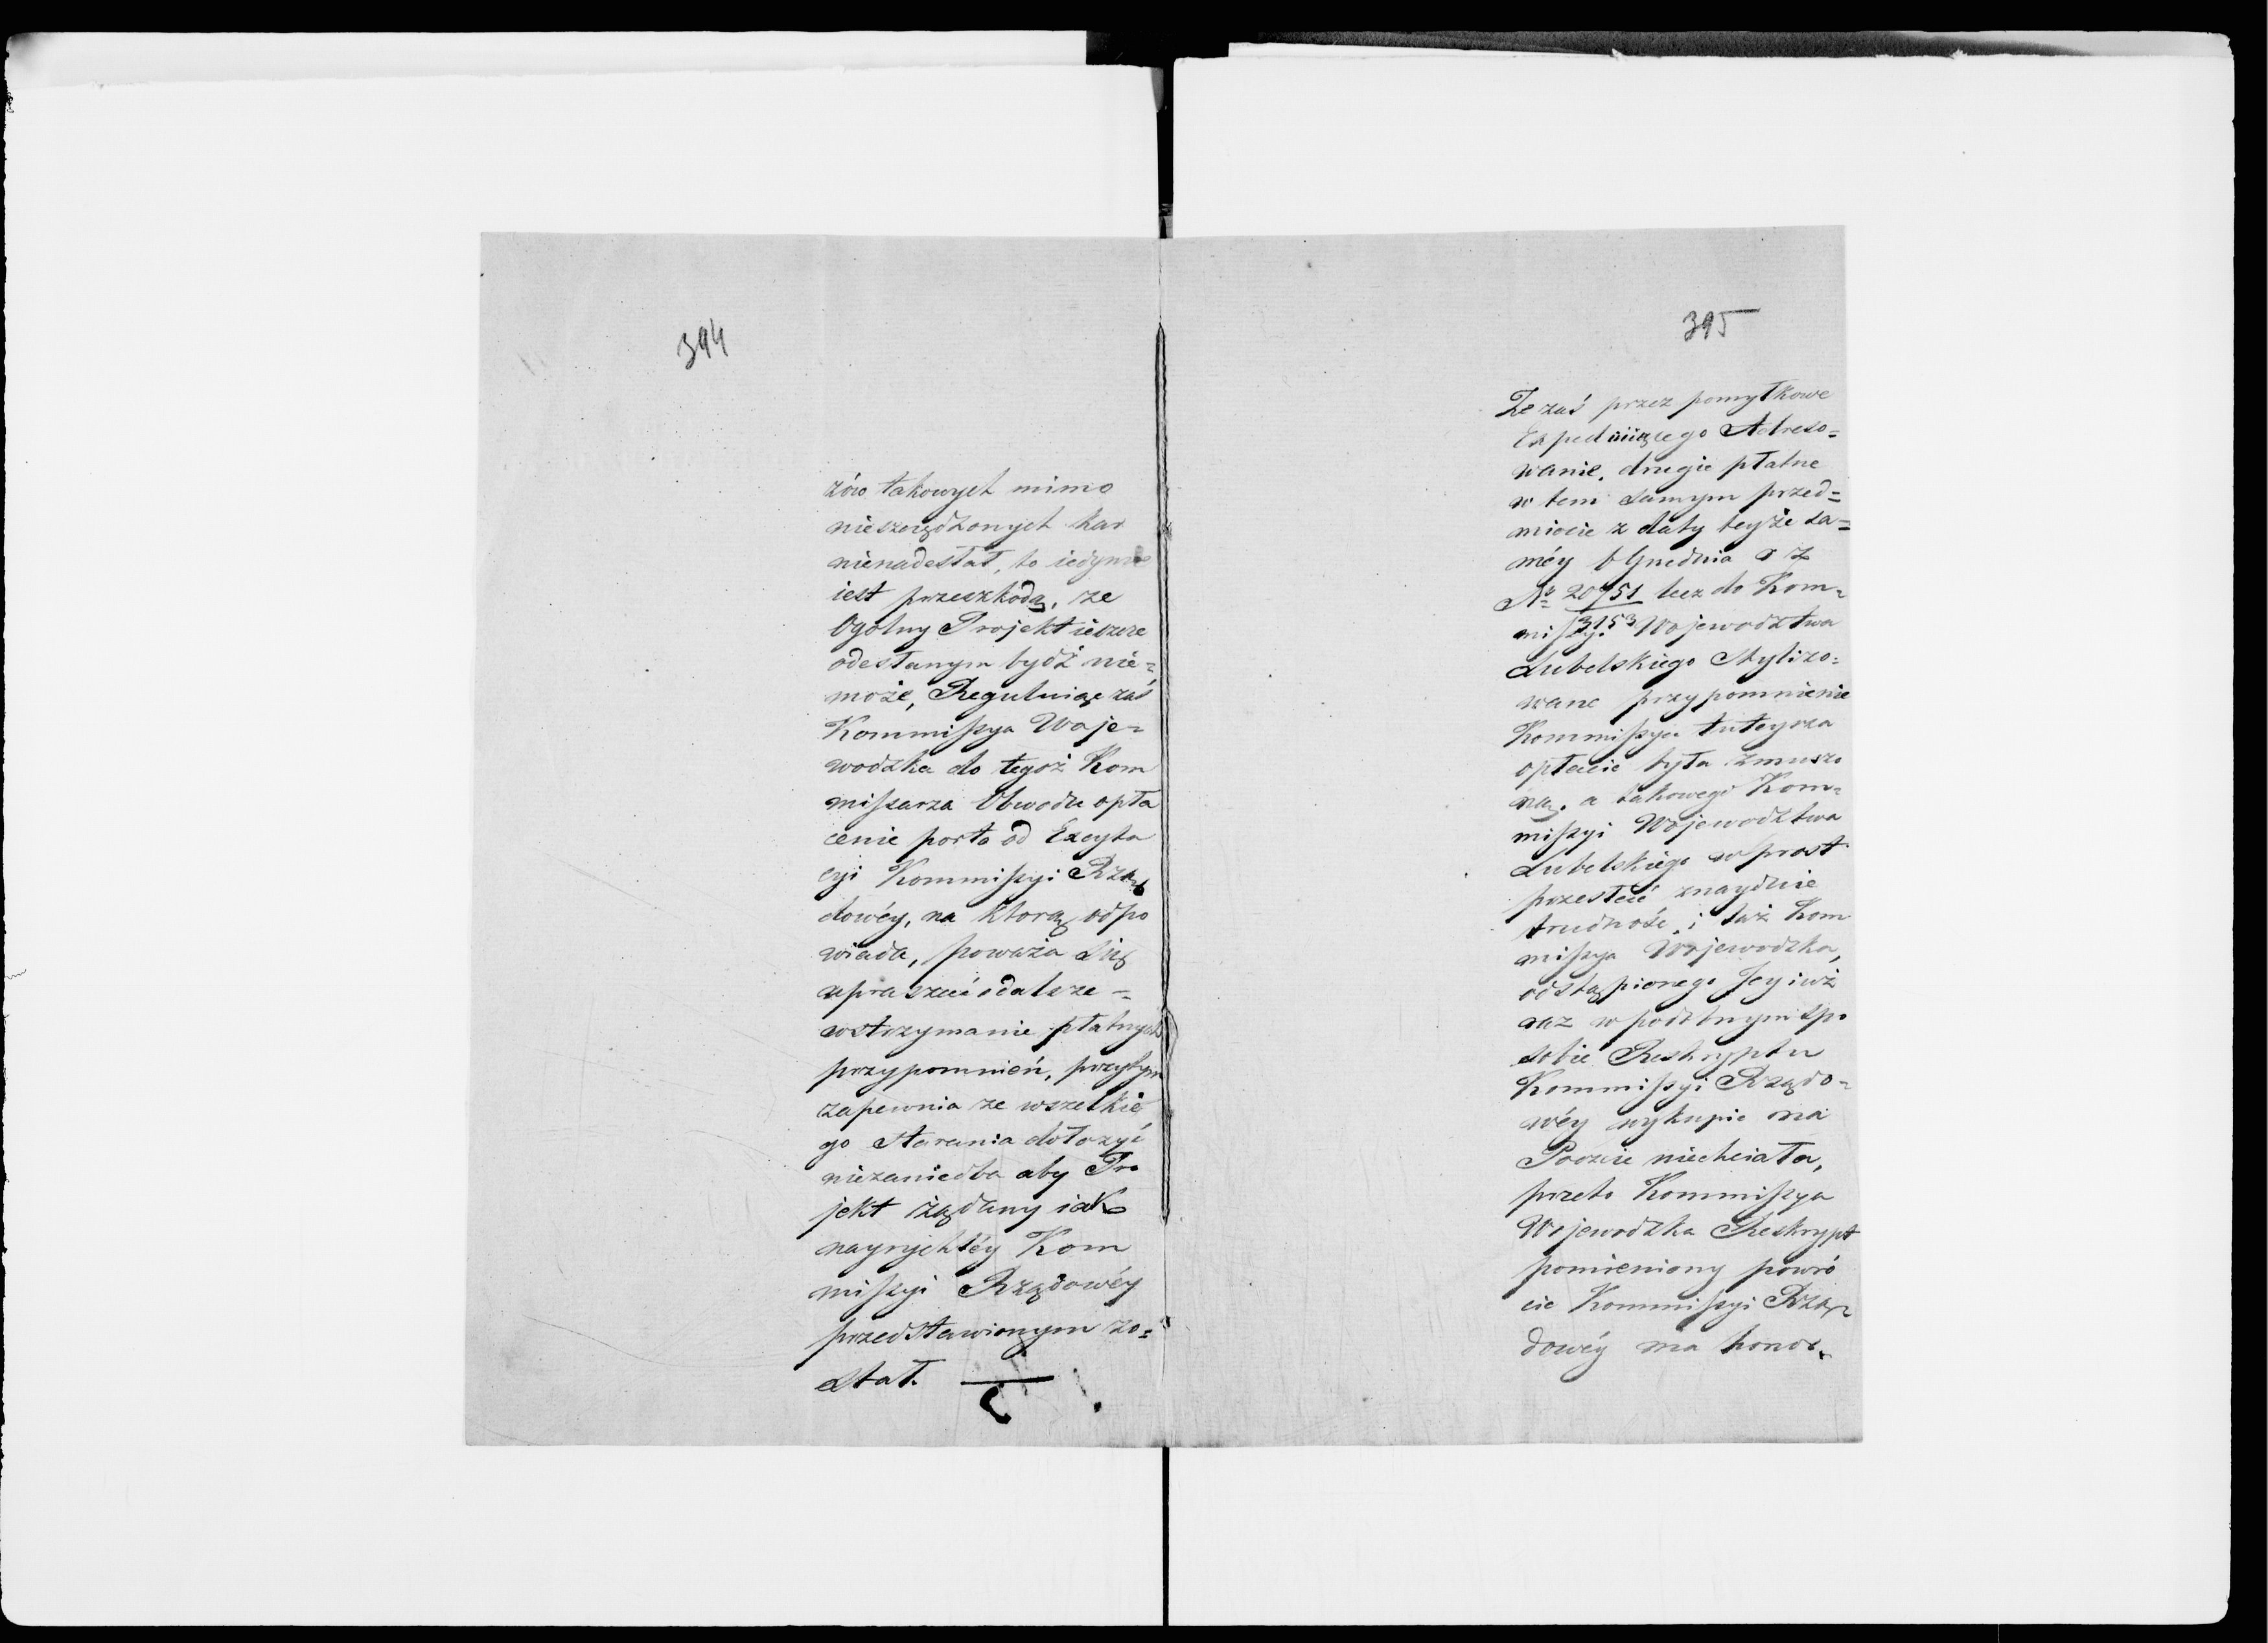 394
zów takowych mimo
nieszczędzonych kar
nienadesłał, to iedynie
iest przeszkodą, ze
Ogólny Projekt ieszcze
odesłanym bydź nie=
może, Reguluiąc zaś
Kommissya Woje=
wodzka do tegoż Kom
missarza Obwodu opła
cenie porto od Excyta
cyi Kommissyi Rzą
dowéy, na ktorą odpo
wiada, poważa Się
upraszać odalsze =
wstrzymanie płatnych
przypomnień, przytym
zapewnia ze wszelkie
go Starania dołożyć
niezaniedba aby Pro
jekt żądany iak
nayrychléy Kom
missyi Rządowéy
przedstawionym zo=
stał.
395
Ze zaś przez pomyłkowe
Expedyiuącego Adreso=
wanie, drugie płatne
w tem samym przed=
miocie z daty teyże sa=
méy 6 Grudnia r z
No 20751 lecz do Kom=
3153
missyi Wojewodztwa
Lubelskiego Stylizo=
wane przypomnienie
Kommissya tuteysza
opłacić była zmuszo
ną, a takowego Kom=
missyi Wojewodztwa
Lubelskiego wprost
przesłać znayduie
trudność, i taż Kom
missya Wojewodzka,
odstąpionego Jey iuż
raz w podobnym spo
sobie Reskryptu
Kommissyi Rządo=
wéy wykupić na
Poczcie niechciała,
przeto Kommissya
Wojewodzka Reskrypt
pomieniony powró
cić Kommissyi Rzą=
dowéy ma honor.